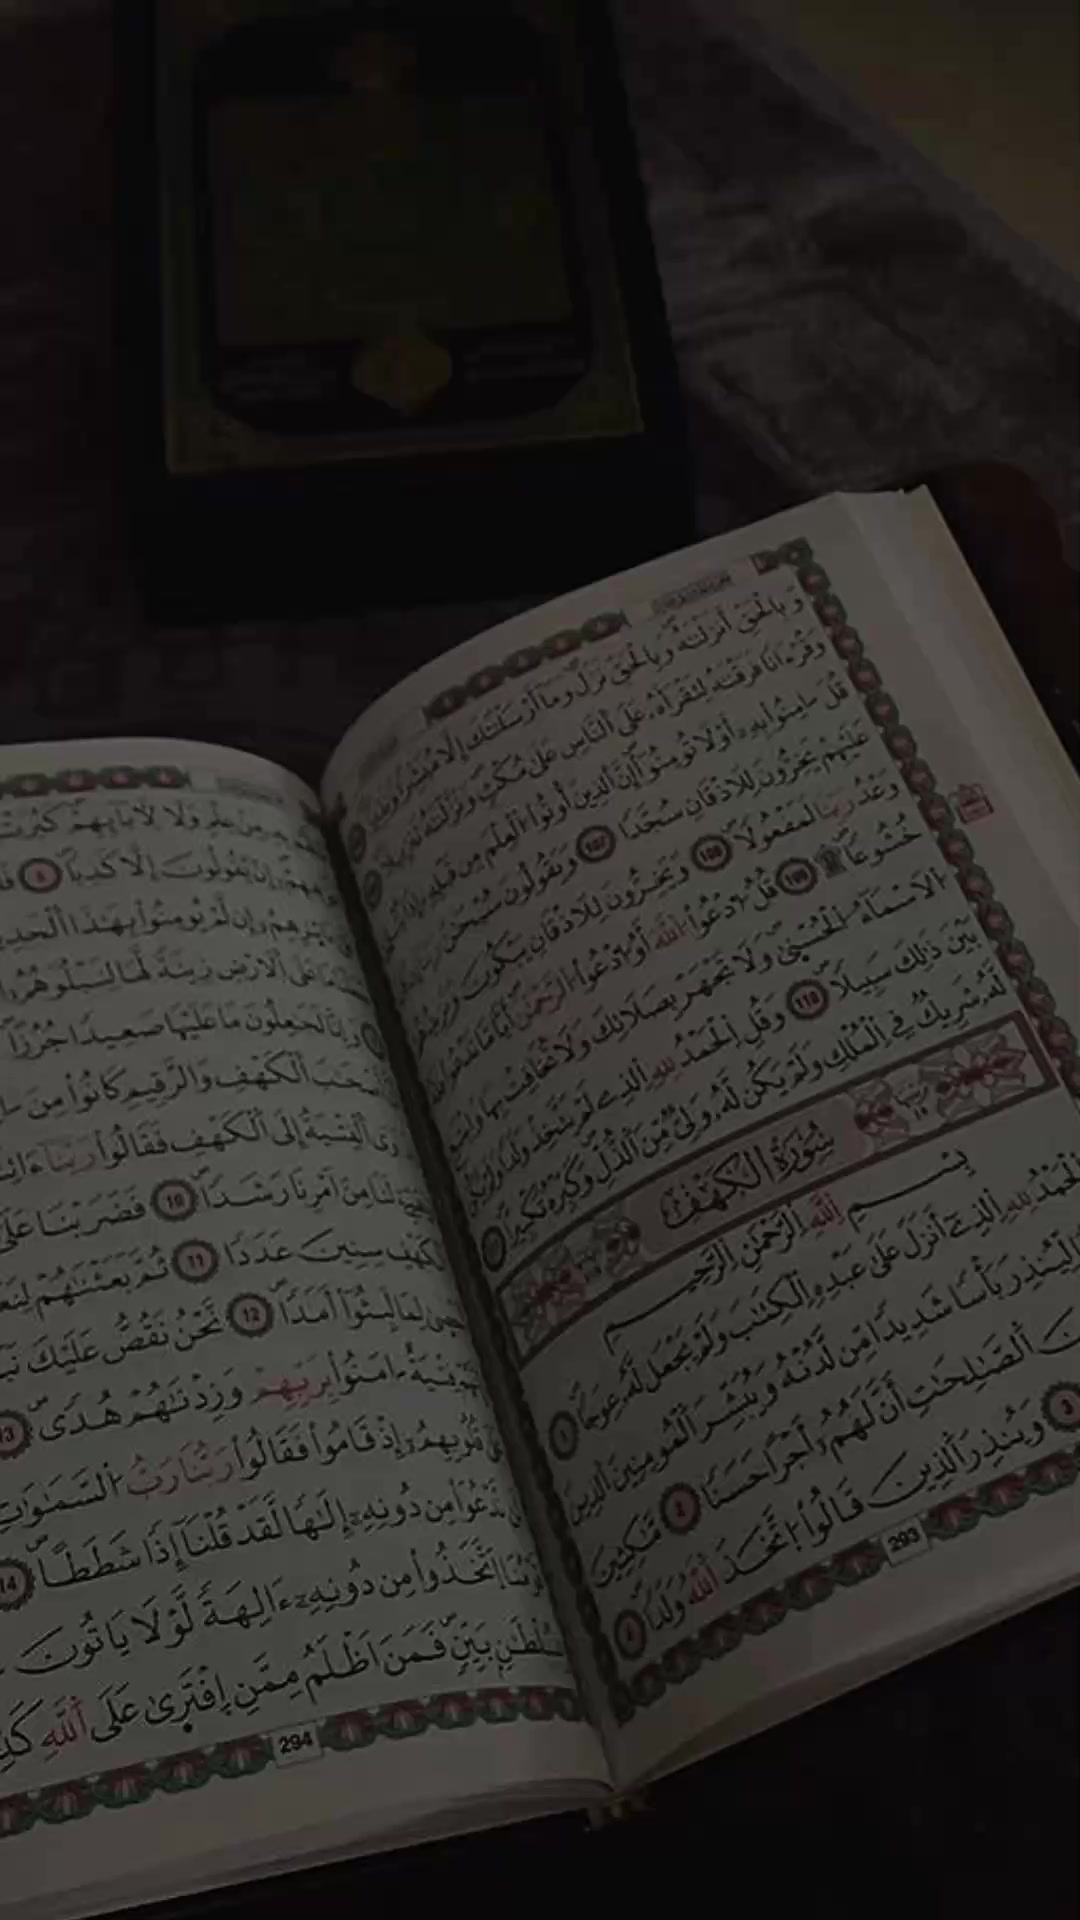 وَبِالْحَقِّ أَنزَلْنَٰهُ وَبِالْحَقِّ نَزَلَ وَمَا أَرْسَلْنَٰكَ إِلَّا مُبَشِّرًا وَنَذِيرًا
وَقُرْءَانًا فَرَقْنَٰهُ لِتَقْرَأَهُۥ عَلَى النَّاسِ عَلَىٰ مُكْثٍ وَنَزَّلْنَٰهُ تَنزِيلًا
قُلْ ءَامِنُوا بِهِۦ أَوْ لَا تُومِنُوا إِنَّ الذِينَ أُوتُوا الْعِلْمَ مِن قَبْلِهِۦ إِذَا يُتْلَىٰ
عَلَيْهِمْ يَخِرُّونَ لِلَاذْقَانِ سُجَّدًا 107 وَيَقُولُونَ سُبْحَٰنَ
وَعْدُ رَبِّنَا لَمَفْعُولًا 108 وَيَخِرُّونَ لِلَاذْقَانِ يَبْكُونَ وَيَزِيدُهُمْ
خُشُوعًا 109 قُلُ ادْعُوا اللَّهَ أَوُ ادْعُوا الرَّحْمَٰنَ أَيًّا مَّا تَدْعُوا فَلَهُ
الَاسْمَاءُ الْحُسْنَىٰ وَلَا تَجْهَرْ بِصَلَاتِكَ وَلَا تُخَافِتْ بِهَا وَابْتَغِ
بَيْنَ ذَٰلِكَ سَبِيلًا 110 وَقُلِ الْحَمْدُ لِلهِ الذِے لَمْ يَتَّخِذْ وَلَدًا وَلَمْ يَكُن
لَّهُۥ شَرِيكٌ فِے الْمُلْكِ وَلَمْ يَكُن لَّهُۥ وَلِيٌّ مِّنَ الذُّلِّ وَكَبِّرْهُ تَكْبِيرًا
سُورَةُ الْكَهْفِ
بِسْمِ اللَّهِ الرَّحْمَٰنِ الرَّحِيمِ
الْحَمْدُ لِلهِ الذِے أَنزَلَ عَلَىٰ عَبْدِهِ الْكِتَٰبَ وَلَمْ يَجْعَل لَّهُۥ عِوَجًا 1
لِّيُنذِرَ بَأْسًا شَدِيدًا مِّن لَّدُنْهُ وَيُبَشِّرَ الْمُومِنِينَ الذِينَ
الصَّٰلِحَٰتِ أَنَّ لَهُمُۥ أَجْرًا حَسَنًا 2 مَّٰكِثِينَ
3 وَيُنذِرَ الذِينَ قَالُوا اتَّخَذَ اللَّهُ وَلَدًا 4
293
مِنْ عِلْمٍ وَلَا لِأَبَائِهِمْ كَبُرَتْ
إِنْ يَّقُولُونَ إِلَّا كَذِبًا 5
إِن لَّمْ يُومِنُوا بِهَٰذَا الْحَدِيثِ
عَلَى الَارْضِ زِينَةً لَّهَا لِنَبْلُوَهُمُۥ
وَإِنَّا لَجَٰعِلُونَ مَا عَلَيْهَا صَعِيدًا جُرُزًا
الْكَهْفِ وَالرَّقِيمِ كَانُوا مِنَ
الْفِتْيَةُ إِلَى الْكَهْفِ فَقَالُوا رَبَّنَا ءَاتِنَا
لَنَا مِنَ امْرِنَا رَشَدًا 10 فَضَرَبْنَا عَلَىٰ
الْكَهْفِ سِنِينَ عَدَدًا 11 ثُمَّ بَعَثْنَٰهُمْ لِنَعْلَمَ
لِمَا لَبِثُوا أَمَدًا 12 نَّحْنُ نَقُصُّ عَلَيْكَ
فِتْيَةٌ ءَامَنُوا بِرَبِّهِمْ وَزِدْنَٰهُمْ هُدًى 13
قُلُوبِهِمُۥ إِذْ قَامُوا فَقَالُوا رَبُّنَا رَبُّ السَّمَٰوَٰتِ
نَّدْعُوَا مِن دُونِهِۦ إِلَٰهًا لَّقَدْ قُلْنَا إِذًا شَطَطًا 14
اتَّخَذُوا مِن دُونِهِۦ ءَالِهَةً لَّوْلَا يَاتُونَ
بِسُلْطَٰنٍ بَيِّنٍ فَمَنَ اَظْلَمُ مِمَّنِ اِفْتَرَىٰ عَلَى اللَّهِ كَذِبًا
294